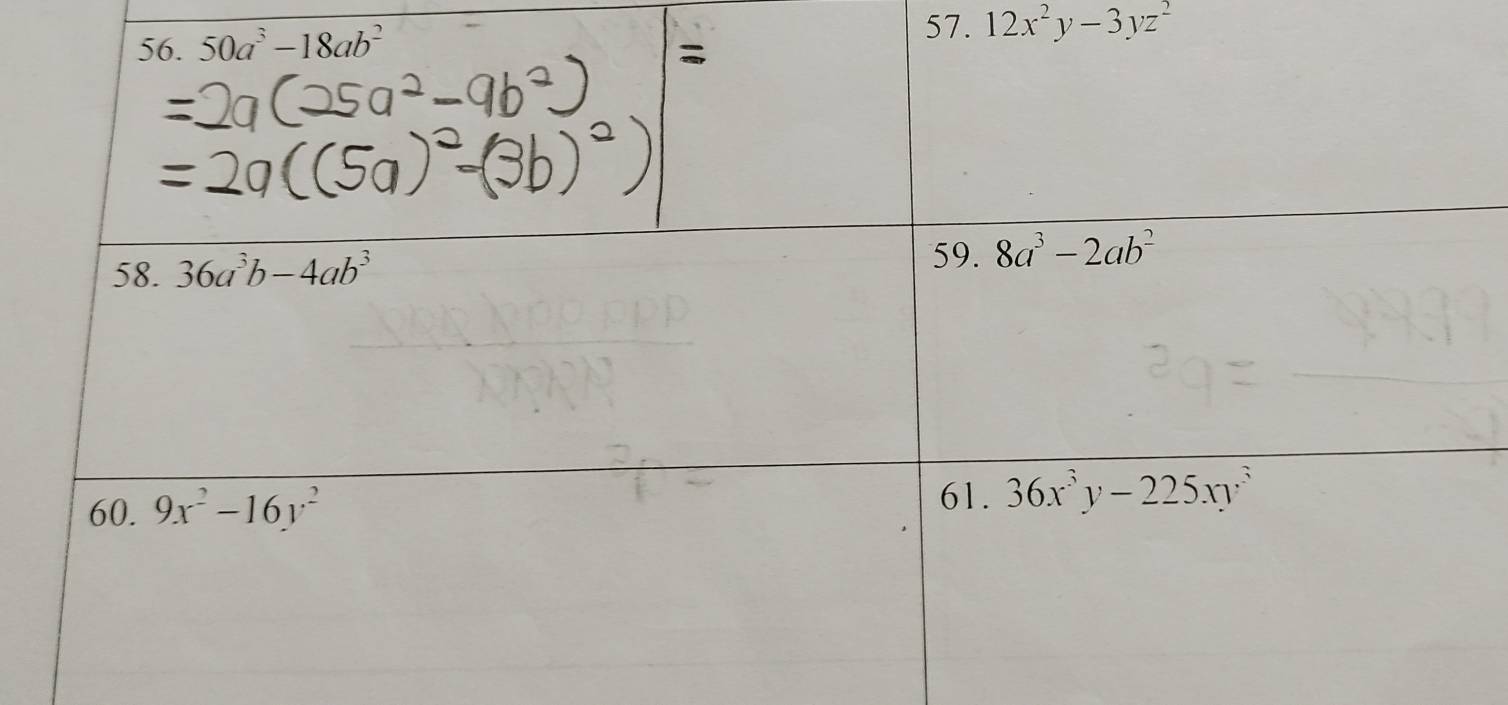 56. 50a³ – 18ab²
=2a(25a²-9b²)
=2a((5a)²-(3b)²)
=
57. 12x²y – 3yz²
58. 36a³b – 4ab³
59. 8a³ – 2ab²
60. 9x² – 16y²
61. 36x³y – 225xy³